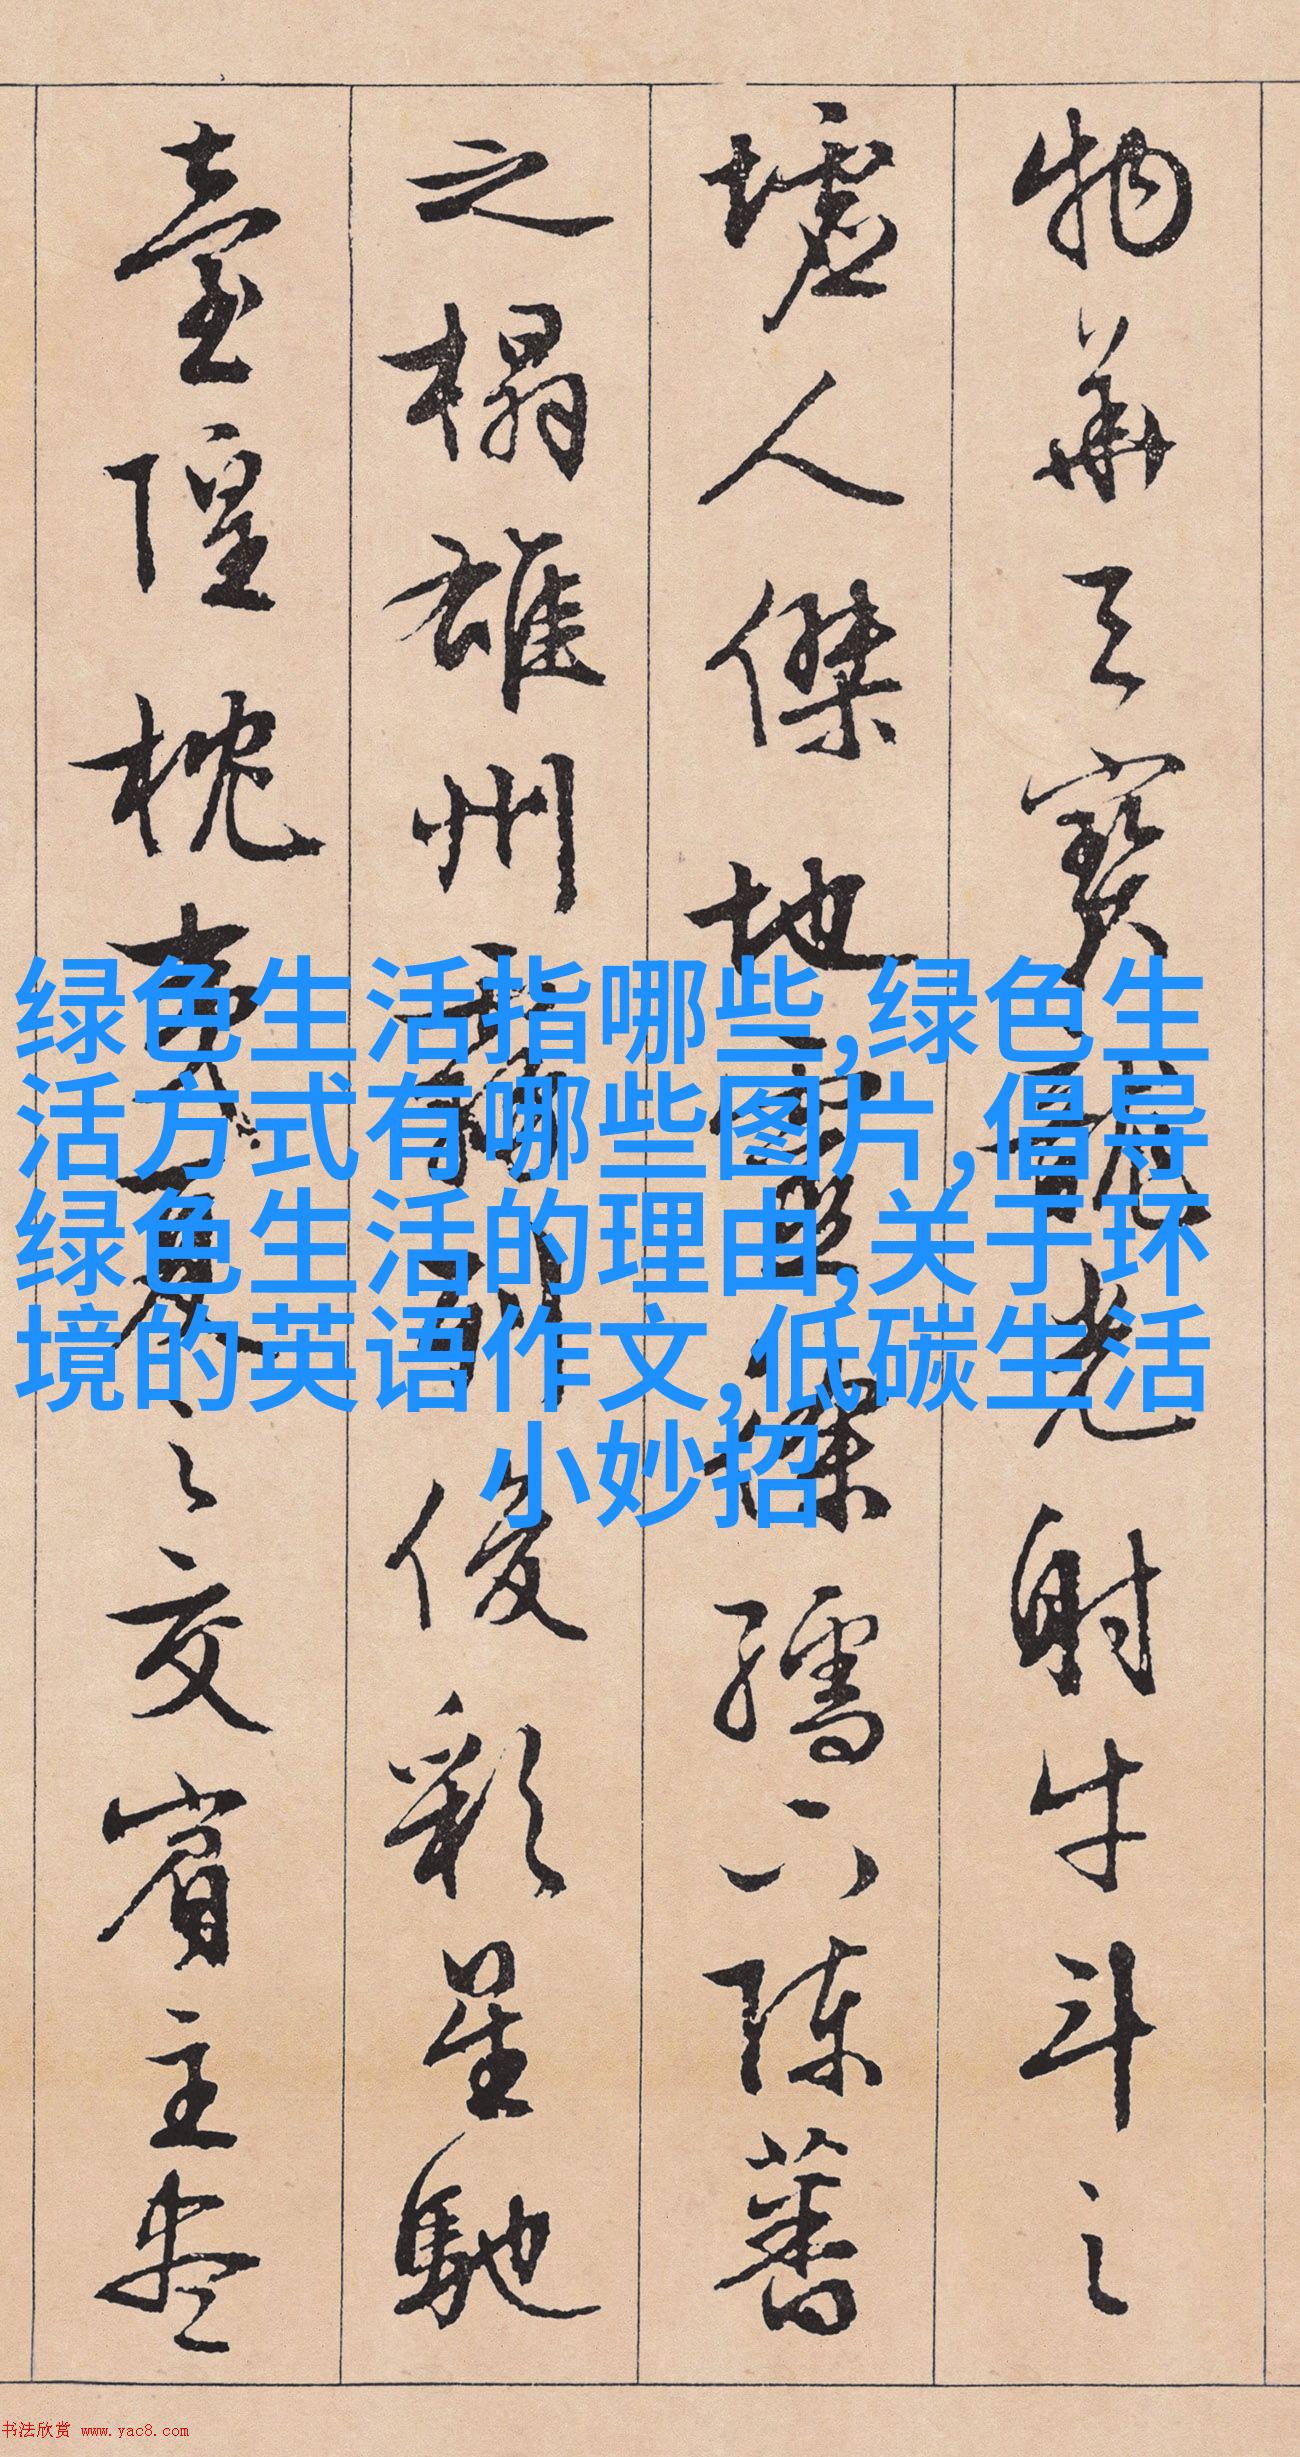 物華天寶龍光射牛斗之
墟人傑地靈徐孺下陳蕃
之榻雄州霧列俊彩星馳
臺隍枕夷夏之交賓主盡
绿色生活指哪些,绿色生
活方式有哪些图片,倡导
绿色生活的理由,关于环
境的英语作文,低碳生活
小妙招
书法欣赏 www.yac8.com